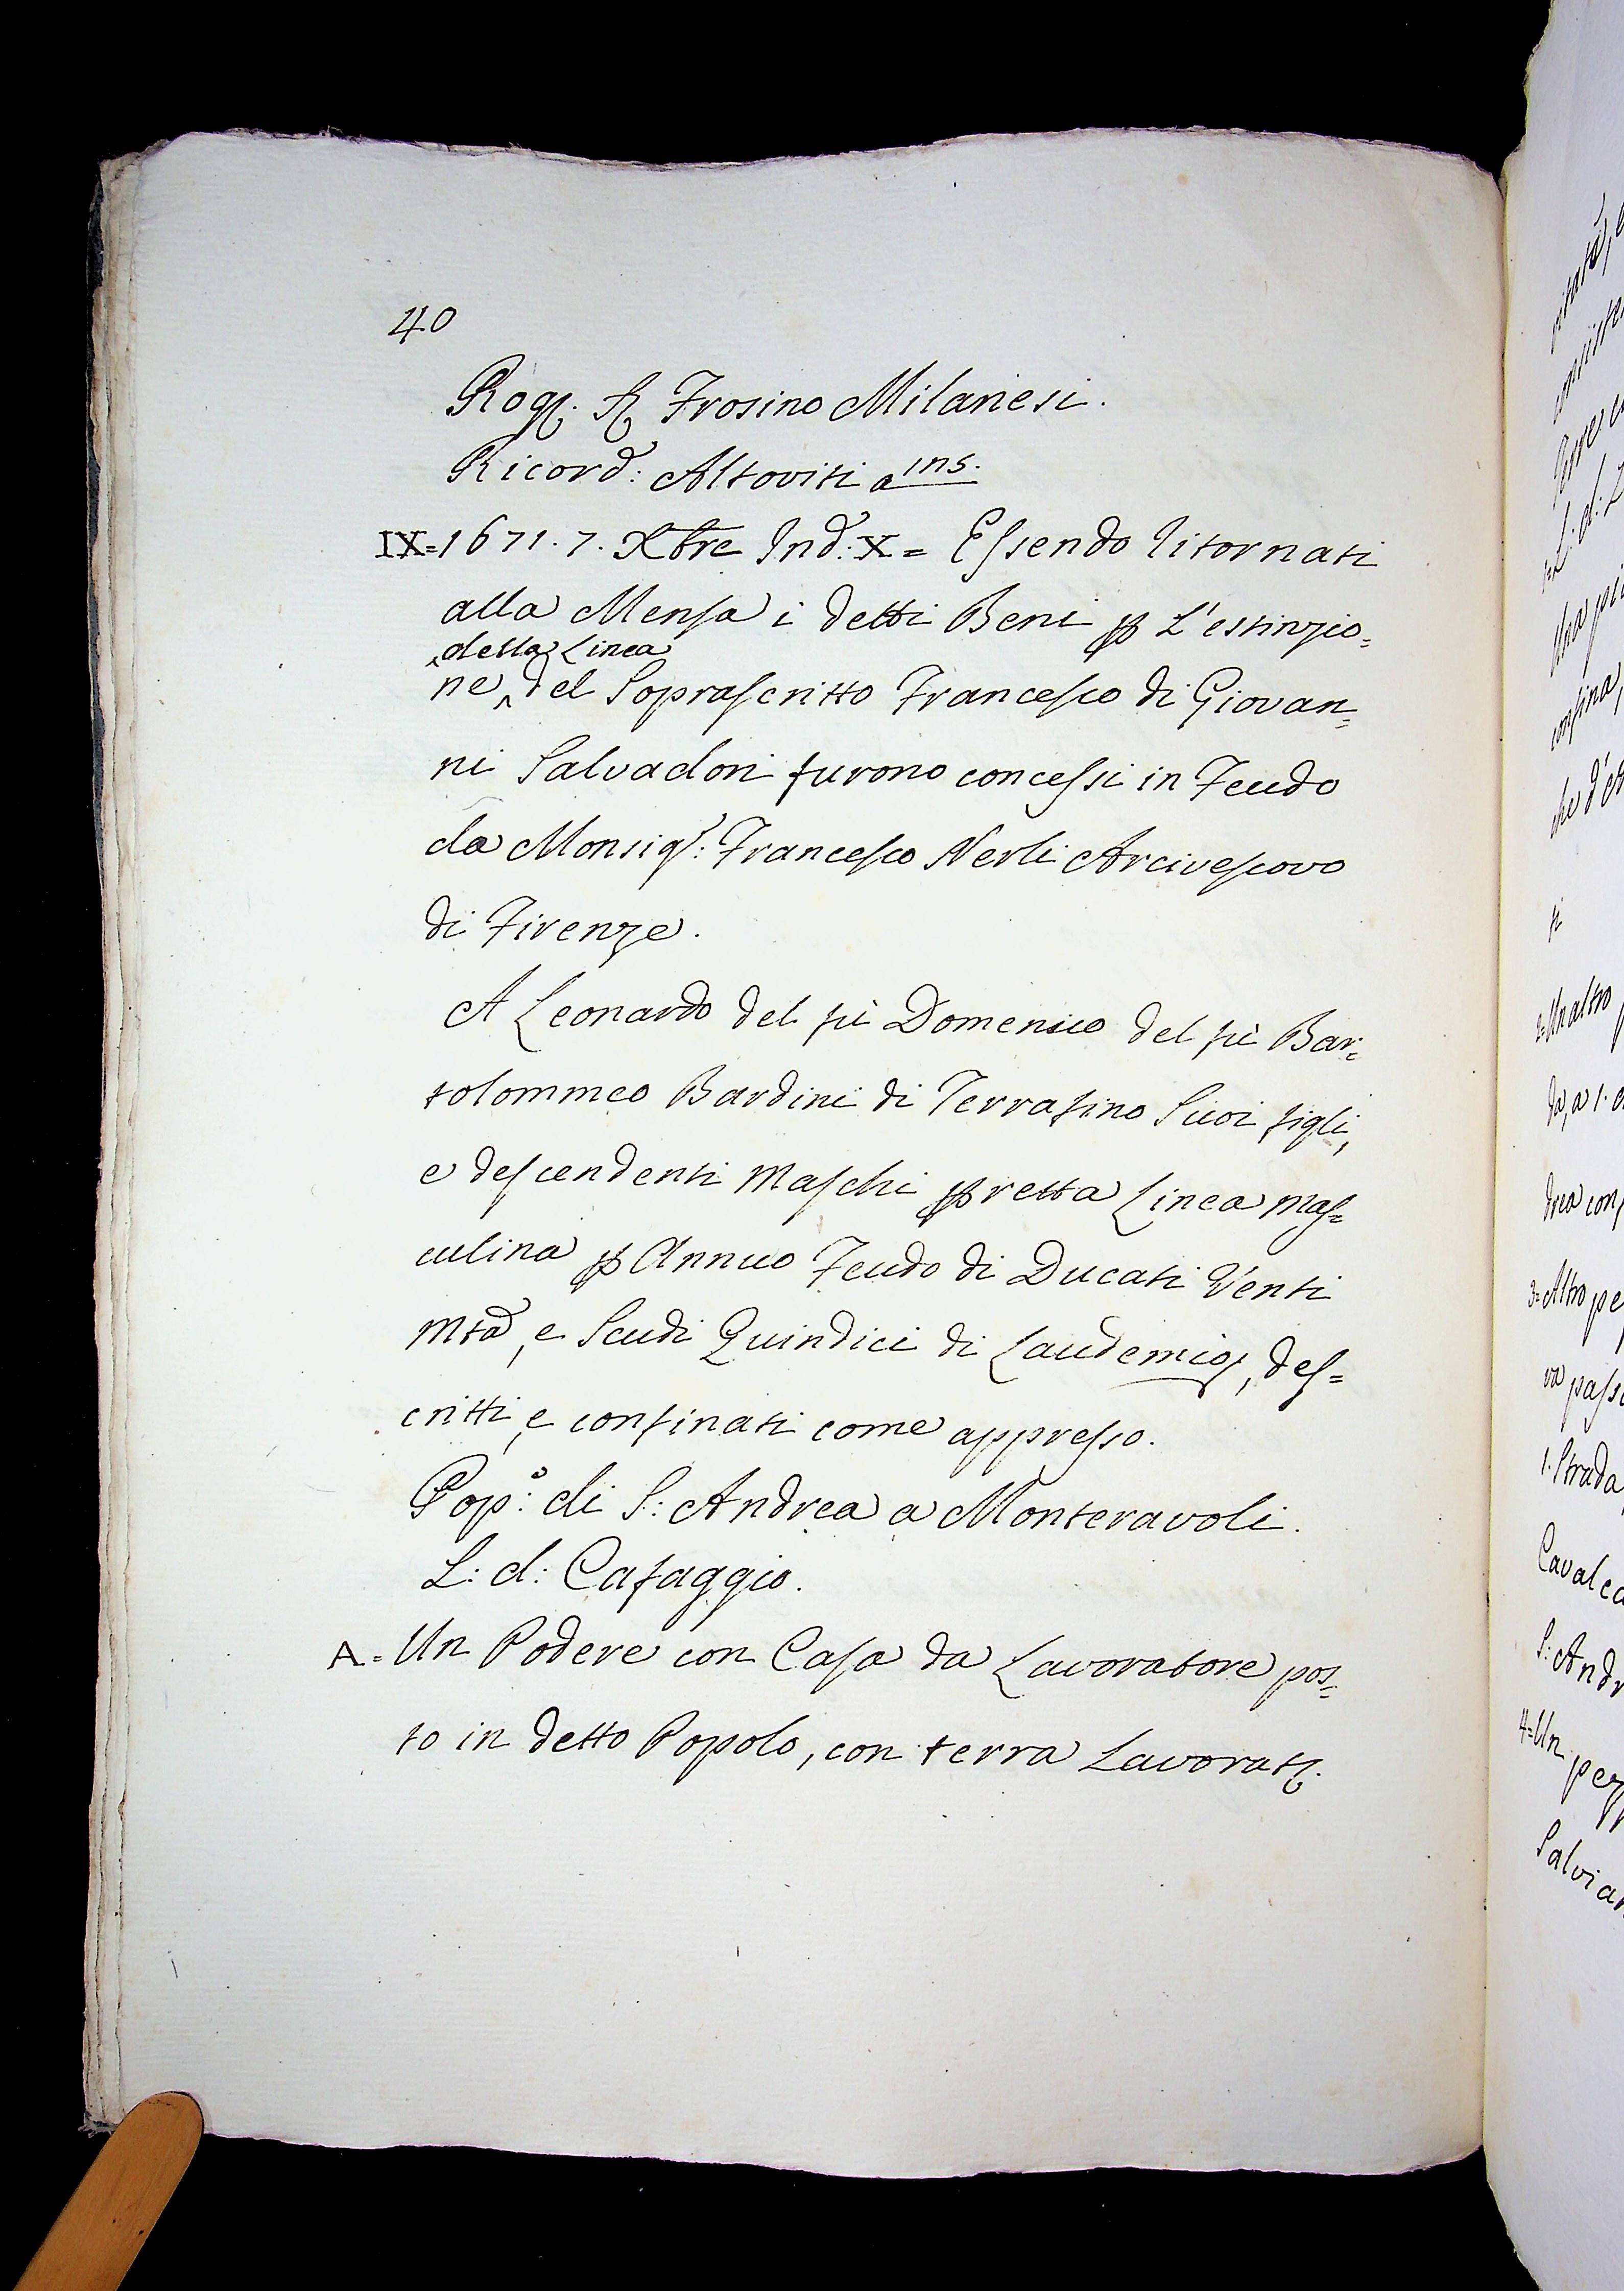 40
Rog. Frosino Milanesi.
Ricord: Altoviti a ins.
IX=1671. 7. Xbre Ind: X= Essendo ritornati
alla Mensa i detti Beni p L'estinzio=
della Linea
ne del Soprascritto Francesco di Giovan=
ni Salvadori furono concessi in Feudo
da Monsigr: Francesco Nerli Arcivescovo
di Firenze.
A Leonardo del fù Domenico del fù Bar=
tolommeo Bardini di Terrafino Suoi figli,
e descendenti Maschi p retta Linea Mas=
culina p Annuo Feudo di Ducati Venti
Mta, e Scudi Quindici di Laudemio, des=
critti, e confinati come appresso.
Pop.o: di S: Andrea a Monteravoli.
L: d: Cafaggio.
A= Un Podere con Casa da Lavoratore pos=
to in detto Popolo, con terra Lavorat.